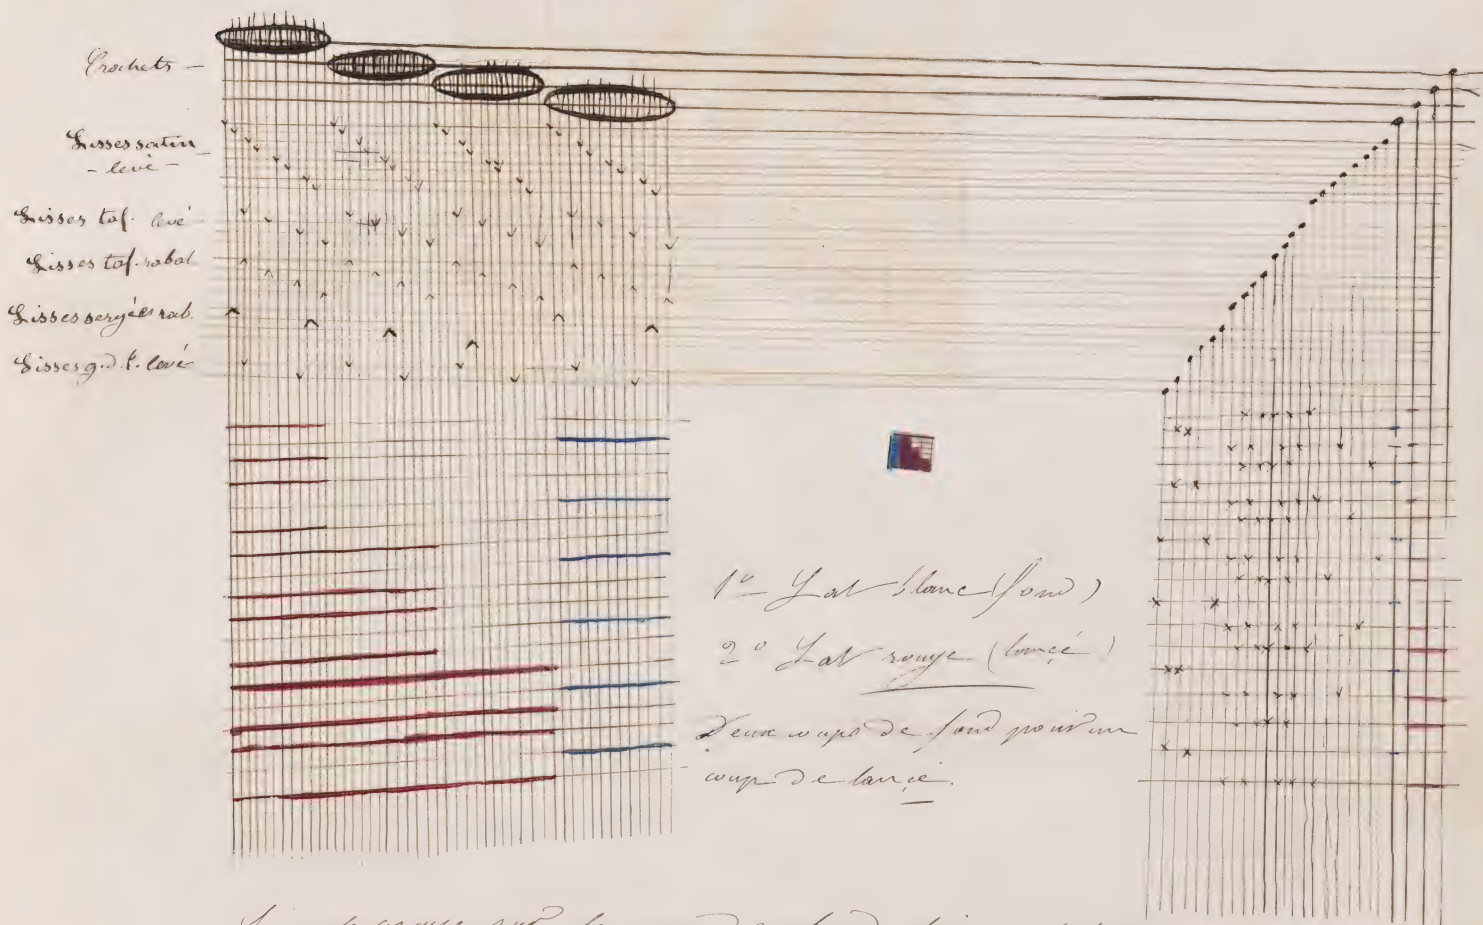 Crochets —
Lisses satin
- levé -
Lisses taf. levé
Lisses taf. rabat
Lisses sergées rab.
Lisses g. d. t. levé
1º Lat blanc (fond)
2º Lat rouge (lancé)
Deux coups de fond pour un
coup de lancé.